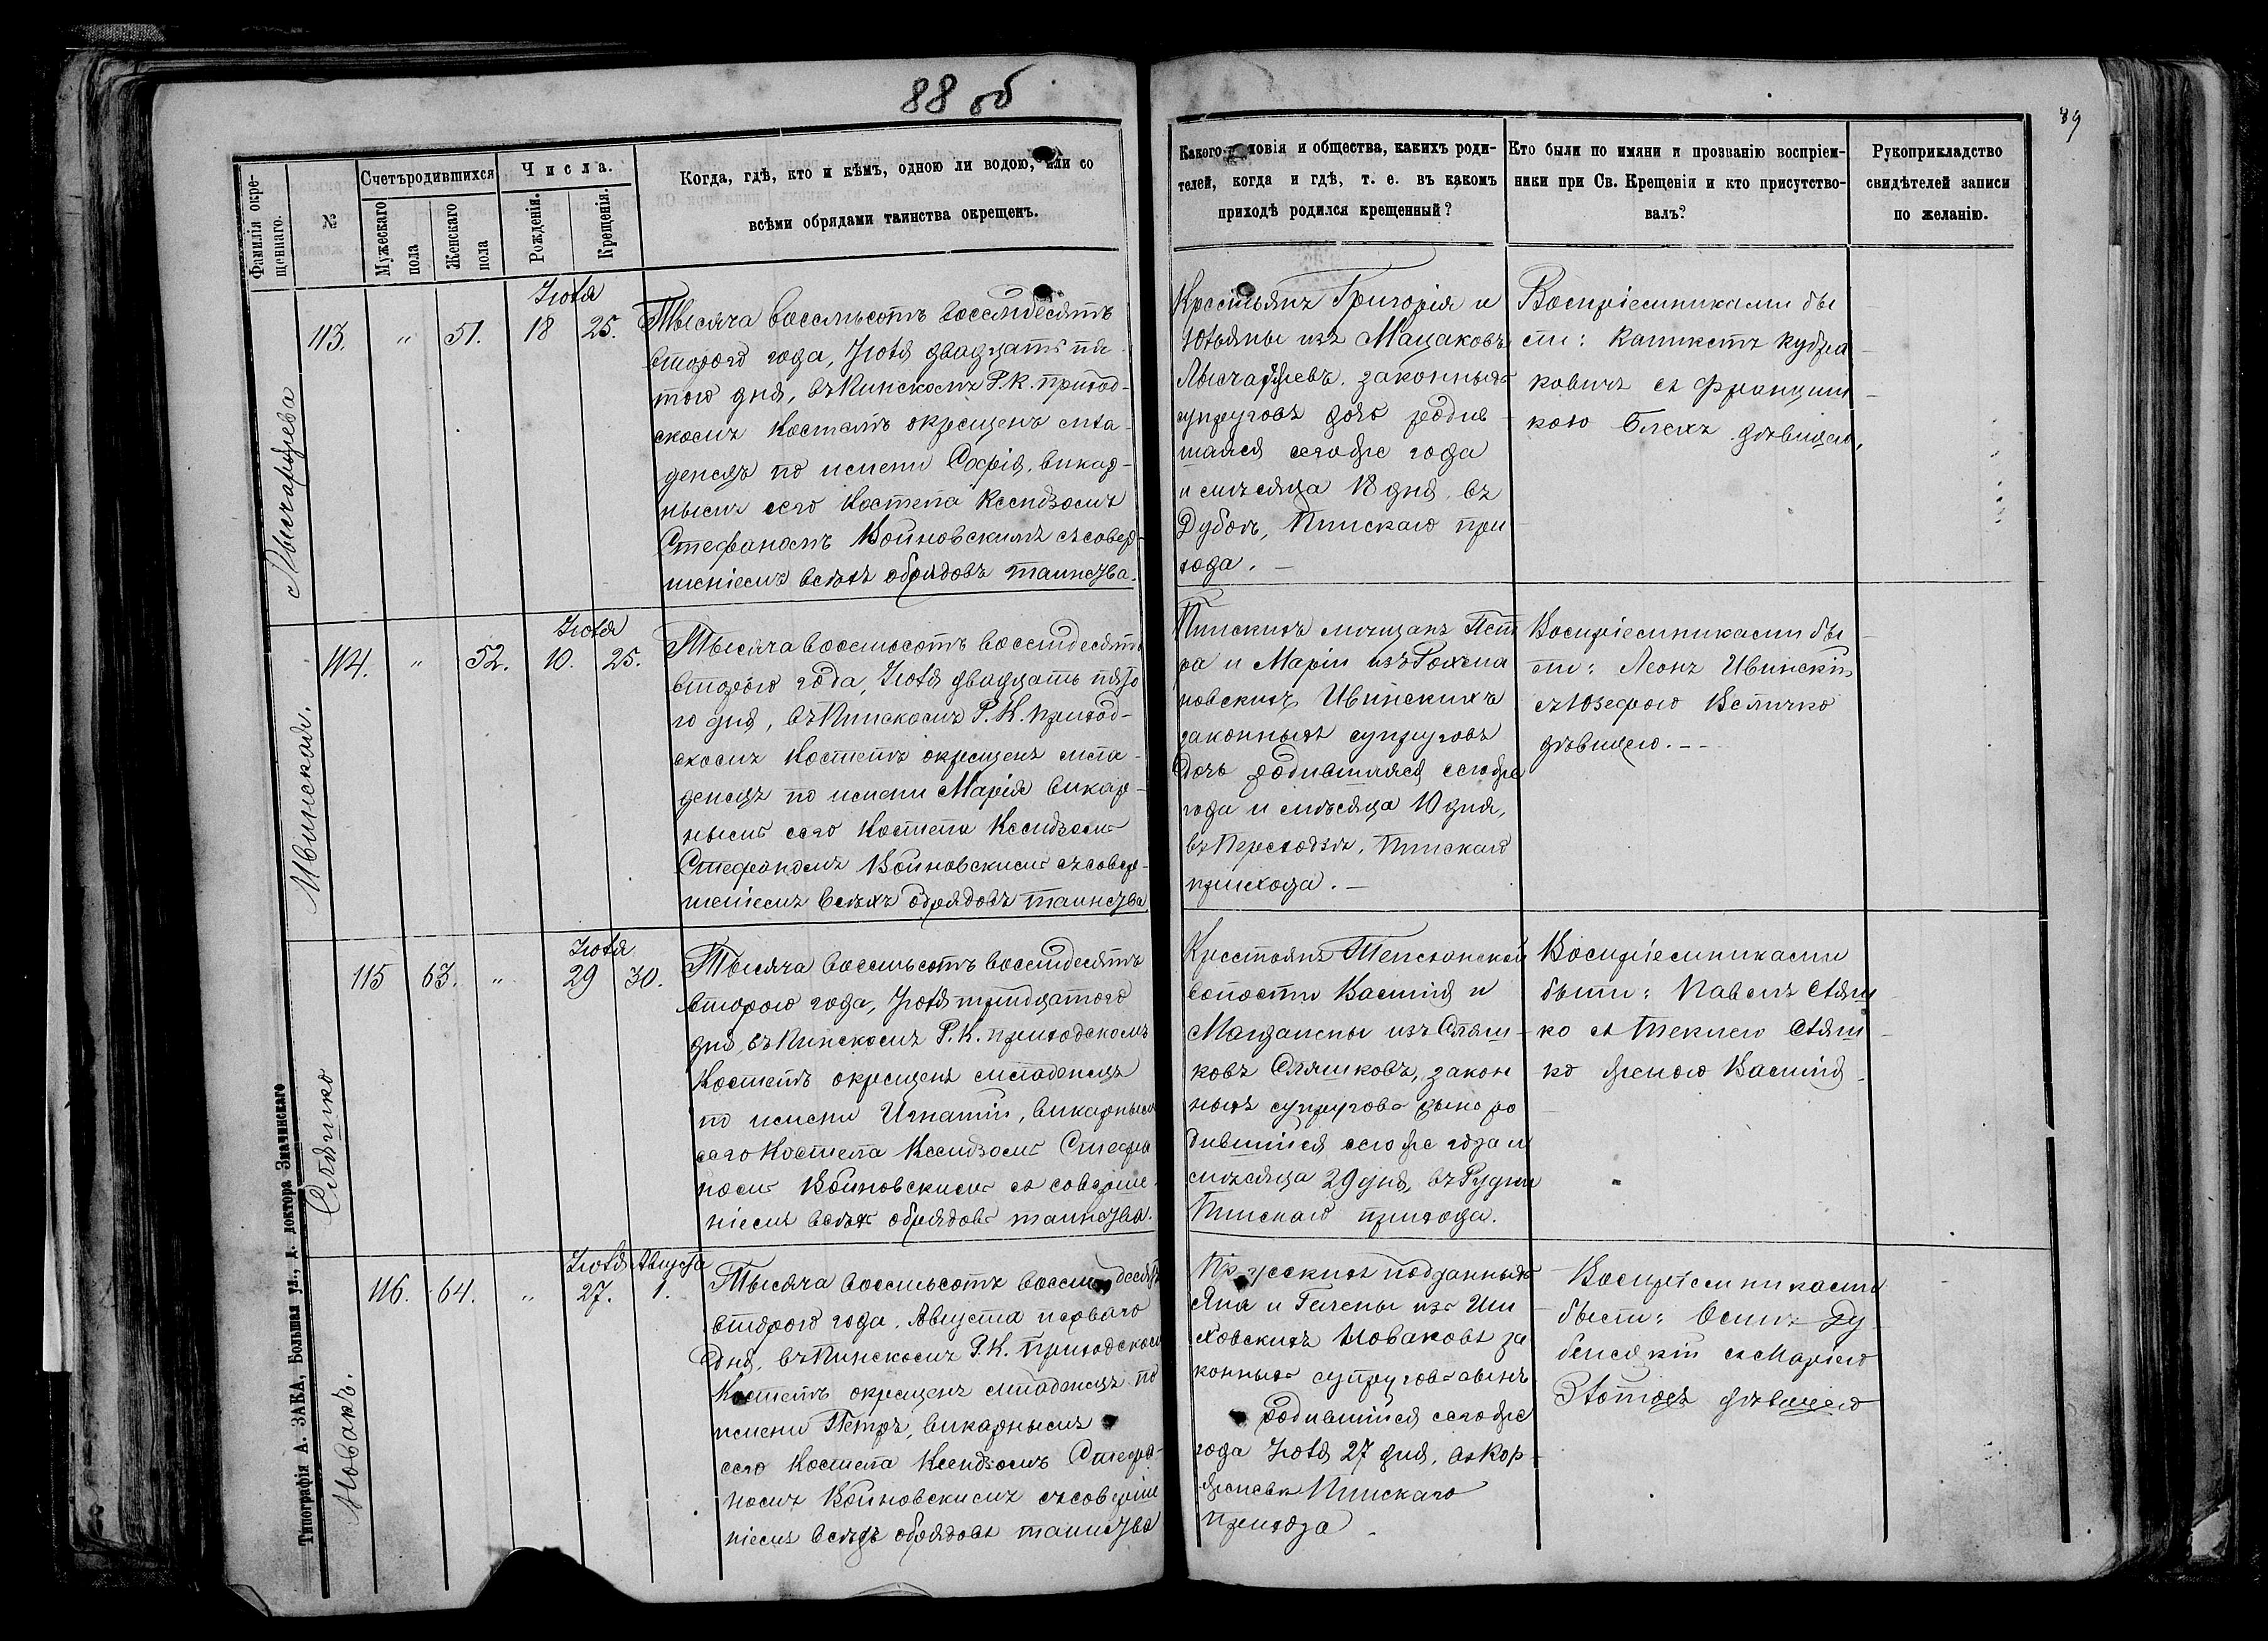 88 об
89
Фамилія окре-
щеннаго.
№
Счетъ родившихся
Мужескаго
пола
Женскаго
пола
Числа.
Рожденія.
Крещенія.
Когда, гдѣ, кто и кѣмъ, одною ли водою, или со
всѣми обрядами таинства окрещенъ.
Какого словія и общества, какихъ роди-
телей, когда и гдѣ, т. е. въ какомъ
приходѣ родился крещенный?
Кто были по имяни и прозванію воспріем-
ники при Св. Крещенія и кто присутство-
валъ?
Рукоприкладство
свидѣтелей записи
по желанію.
Іюля
113. " 51. 18 25.
Тысяча восемьсотъ восемдесятъ
втораго года, Іюля двадцать пя-
таго дня, въ Пинскомъ Р. К. приход-
скомъ Костелѣ окрещенъ мла-
денецъ по имени Софія, викар-
нымъ сего Костела Ксендзомъ
Стефаномъ Войновскимъ съ совер-
шеніемъ всѣхъ обрядовъ таинства.
Крестьянъ Григорія и
Юльяны изъ Мацаковъ
законныхъ
супруговъ дочь родив-
шаяся сего же года
и мѣсяца 18 дня, въ
Дубоѣ, Пинскаго при
хода. —
Воспріемниками бы
ли: Каликстъ Кубра
ковичъ съ Францишкою
Блехъ дѣвицею,
Ивинская.
Іюля
114. " 52. 10. 25.
Тысяча восемьсотъ восемдесятъ
втораго года, Іюля двадцать пято
го дня, въ Пинскомъ Р. К. приход-
скомъ Костелѣ окрещенъ мла-
денецъ по имени Марія викар-
нымъ сего Костела Ксендзомъ
Стефаномъ Войновскимъ съ совер-
шеніемъ всѣхъ обрядовъ таинства
Пинскихъ мѣщанъ Пет
ра и Маріи изъ
Ивинскихъ
законныхъ супруговъ
дочь родившаяся сего же
года и мѣсяца 10 дня,
въ Пинскаго
прихода. —
Воспріемниками бы
ли: Леонъ Ивинскій
съ Юзефою Величко
дѣвицею. —
Сляшко
Іюля
115 63. " 29 30.
Тысяча восемьсотъ восемдесятъ
втораго года, Іюля тридцатого
дня, въ Пинскомъ Р. К. приходскомъ
Костелѣ окрещенъ младенецъ
по имени Игнатій, викарнымъ
сего Костела Ксендзомъ Стефа
номъ Войновскимъ съ соверше
ніемъ всѣхъ обрядовъ таинства.
Крестьянъ
волости Василія и
Магдалены изъ Сляш-
ковъ Сляшковъ, закон
ныхъ супруговъ сынъ ро
дившійся сего же года и
мѣсяца 29 дня, въ Рудни
Пинскаго прихода.
Воспріемниками
были: Павелъ Сляш
ко съ Теклею Сляш
ко женою Василія
Новакъ.
Іюля Августа
116. 64. " 27. 1.
Тысяча восемьсотъ восемдесятъ
втораго года, Августа перваго
дня, въ Пинскомъ Р. К. приходскомъ
Костелѣ окрещенъ младенецъ по
имени Петръ, викарнымъ
сего Костела Ксендзомъ Стефа-
номъ Войновскимъ съ соверше
ніемъ всѣхъ обрядовъ таинства
Прусскихъ подданныхъ
Яна и Гелены изъ Ши
ховскихъ Новаковъ за
конныхъ супруговъ сынъ
родившійся сего же
года Іюля 27 дня, въ Кор-
Пинскаго
прихода
Воспріемниками
были:
съ Маріею
дѣвицею
Типографія А. ЗАКА, Большая ул., д. доктора Значинскаго